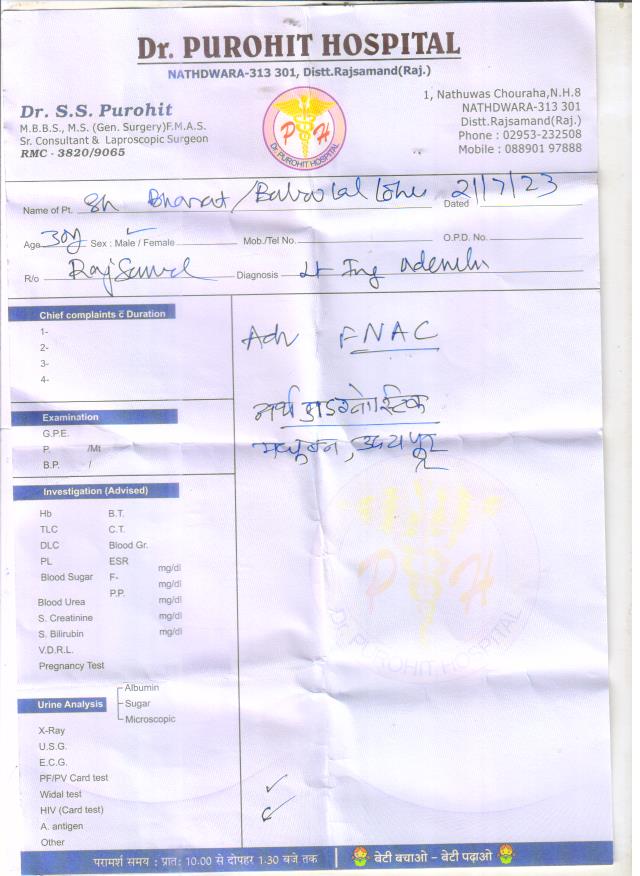 Dr. PUROHIT HOSPITAL
NATHDWARA-313 301, Distt.Rajsamand(Raj.)
Dr. S.S. Purohit
M.B.B.S., M.S. (Gen. Surgery)F.M.A.S.
Sr. Consultant & Laproscopic Surgeon
RMC - 3820/9065
P H
Dr. PUROHIT HOSPITAL
1, Nathuwas Chouraha,N.H.8
NATHDWARA-313 301
Distt.Rajsamand(Raj.)
Phone : 02953-232508
Mobile : 088901 97888
Name of Pt. Sh Bharat / Dated 21/7/23
Age 30y Sex : Male / Female Mob./Tel No. O.P.D. No.
R/o Diagnosis Lt Ing
Chief complaints c̄ Duration
1-
2-
3-
4-
Adv FNAC
अर्थ डाइग्नोस्टिक
मधुबन, उदयपुर
Examination
G.P.E.
P. /Mt
B.P. /
Investigation (Advised)
Hb B.T.
TLC C.T.
DLC Blood Gr.
PL ESR
Blood Sugar F- mg/dl
P.P. mg/dl
Blood Urea mg/dl
S. Creatinine mg/dl
S. Bilirubin mg/dl
V.D.R.L.
Pregnancy Test
P H
Dr. PUROHIT HOSPITAL
Urine Analysis
Albumin
Sugar
Microscopic
X-Ray
U.S.G.
E.C.G.
PF/PV Card test
Widal test
HIV (Card test)
A. antigen
Other
परामर्श समय : प्रात: 10.00 से दोपहर 1.30 बजे तक
बेटी बचाओ - बेटी पढ़ाओ